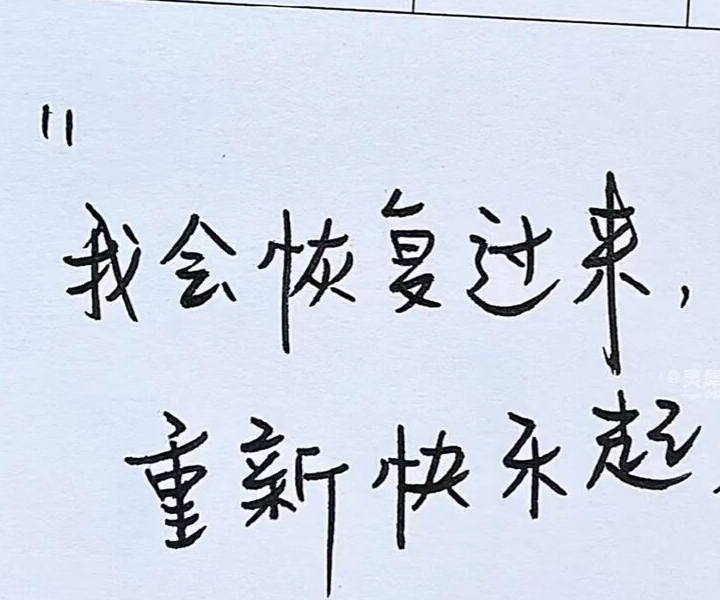 "
我会恢复过来,
重新快乐起